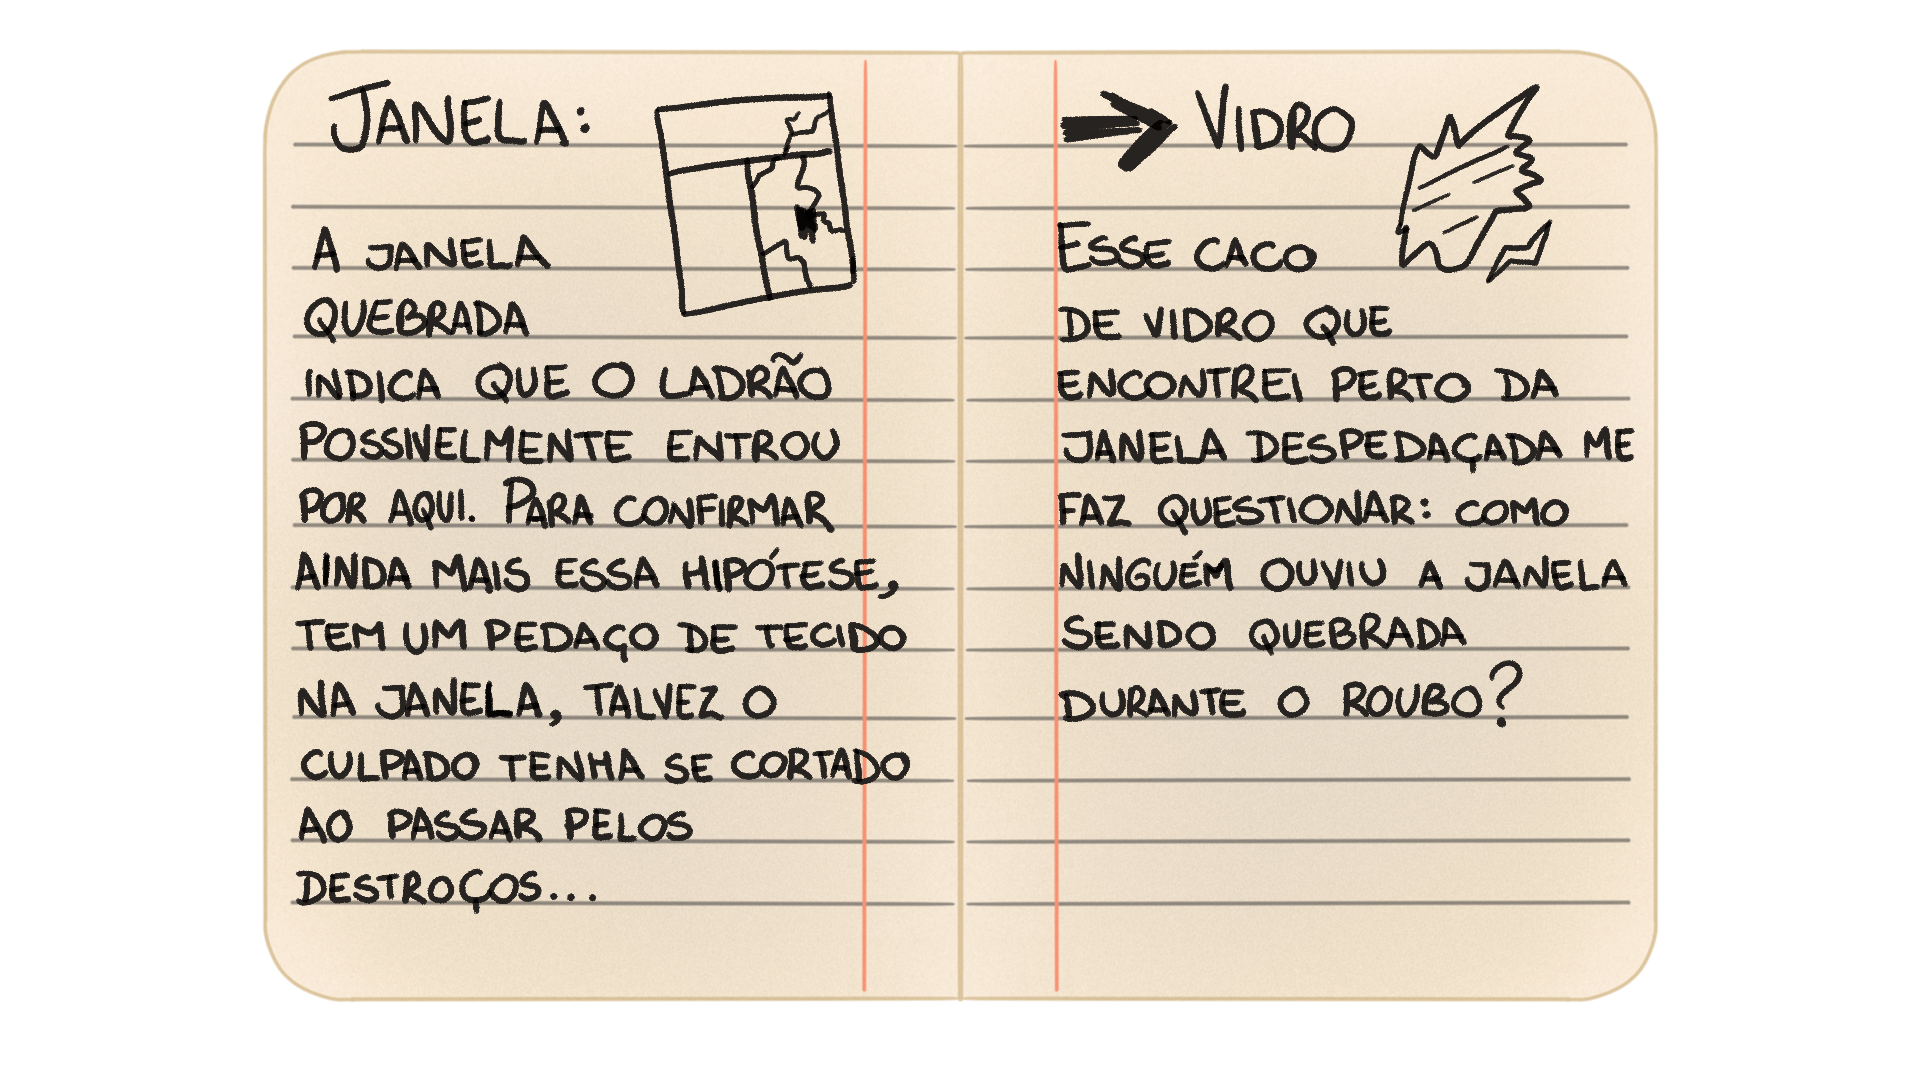 JANELA:
A JANELA
QUEBRADA
INDICA QUE O LADRÃO
POSSIVELMENTE ENTROU
POR AQUI. PARA CONFIRMAR
AINDA MAIS ESSA HIPÓTESE,
TEM UM PEDAÇO DE TECIDO
NA JANELA, TALVEZ O
CULPADO TENHA SE CORTADO
AO PASSAR PELOS
DESTROÇOS...
VIDRO
ESSE CACO
DE VIDRO QUE
ENCONTREI PERTO DA
JANELA DESPEDAÇADA ME
FAZ QUESTIONAR: COMO
NINGUÉM OUVIU A JANELA
SENDO QUEBRADA
DURANTE O ROUBO?